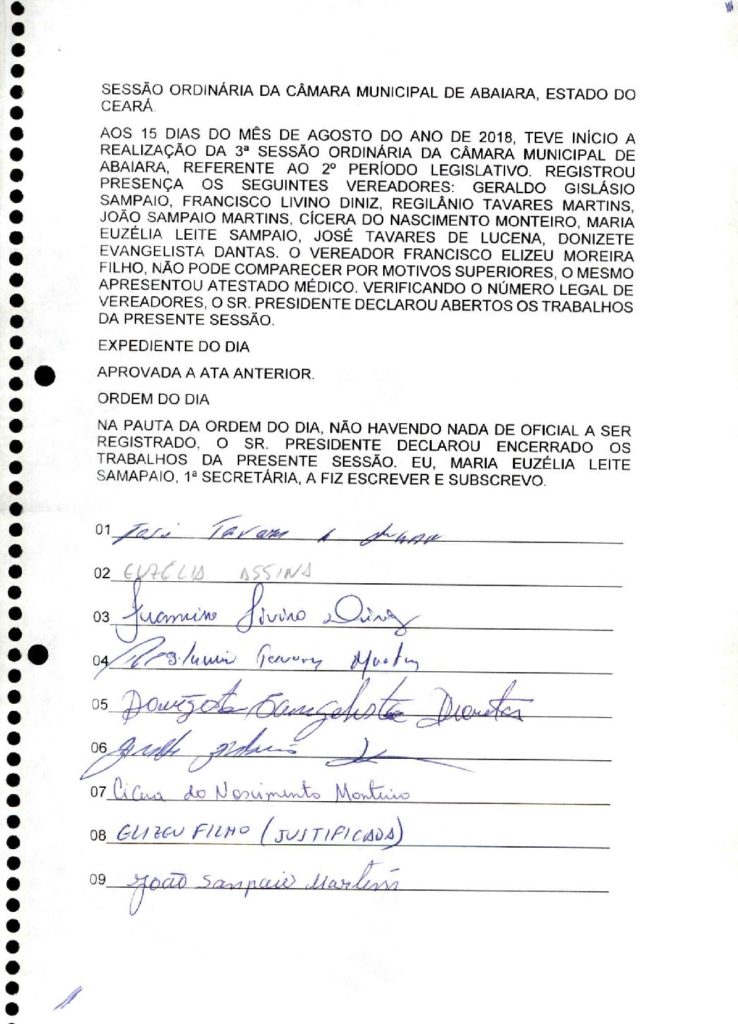 SESSÃO ORDINÁRIA DA CÂMARA MUNICIPAL DE ABAIARA, ESTADO DO
CEARÁ.
AOS 15 DIAS DO MÊS DE AGOSTO DO ANO DE 2018, TEVE INÍCIO A
REALIZAÇÃO DA 3ª SESSÃO ORDINÁRIA DA CÂMARA MUNICIPAL DE
ABAIARA, REFERENTE AO 2º PERÍODO LEGISLATIVO. REGISTROU
PRESENÇA OS SEGUINTES VEREADORES: GERALDO GISLÁSIO
SAMPAIO, FRANCISCO LIVINO DINIZ, REGILÂNIO TAVARES MARTINS,
JOÃO SAMPAIO MARTINS, CÍCERA DO NASCIMENTO MONTEIRO, MARIA
EUZÉLIA LEITE SAMPAIO, JOSÉ TAVARES DE LUCENA, DONIZETE
EVANGELISTA DANTAS. O VEREADOR FRANCISCO ELIZEU MOREIRA
FILHO, NÃO PODE COMPARECER POR MOTIVOS SUPERIORES, O MESMO
APRESENTOU ATESTADO MÉDICO. VERIFICANDO O NÚMERO LEGAL DE
VEREADORES, O SR. PRESIDENTE DECLAROU ABERTOS OS TRABALHOS
DA PRESENTE SESSÃO.
EXPEDIENTE DO DIA
APROVADA A ATA ANTERIOR.
ORDEM DO DIA
NA PAUTA DA ORDEM DO DIA, NÃO HAVENDO NADA DE OFICIAL A SER
REGISTRADO, O SR. PRESIDENTE DECLAROU ENCERRADO OS
TRABALHOS DA PRESENTE SESSÃO. EU, MARIA EUZÉLIA LEITE
SAMAPAIO, 1ª SECRETÁRIA, A FIZ ESCREVER E SUBSCREVO.
01
02 EUZÉLIA ASSINA
03 Livino Diniz
04 Tavares Martins
05 Donizete Evangelista Dantas
06
07 Cicera do Nascimento Monteiro
08 ELIZEU FILHO (JUSTIFICADA)
09 João Sampaio Martins